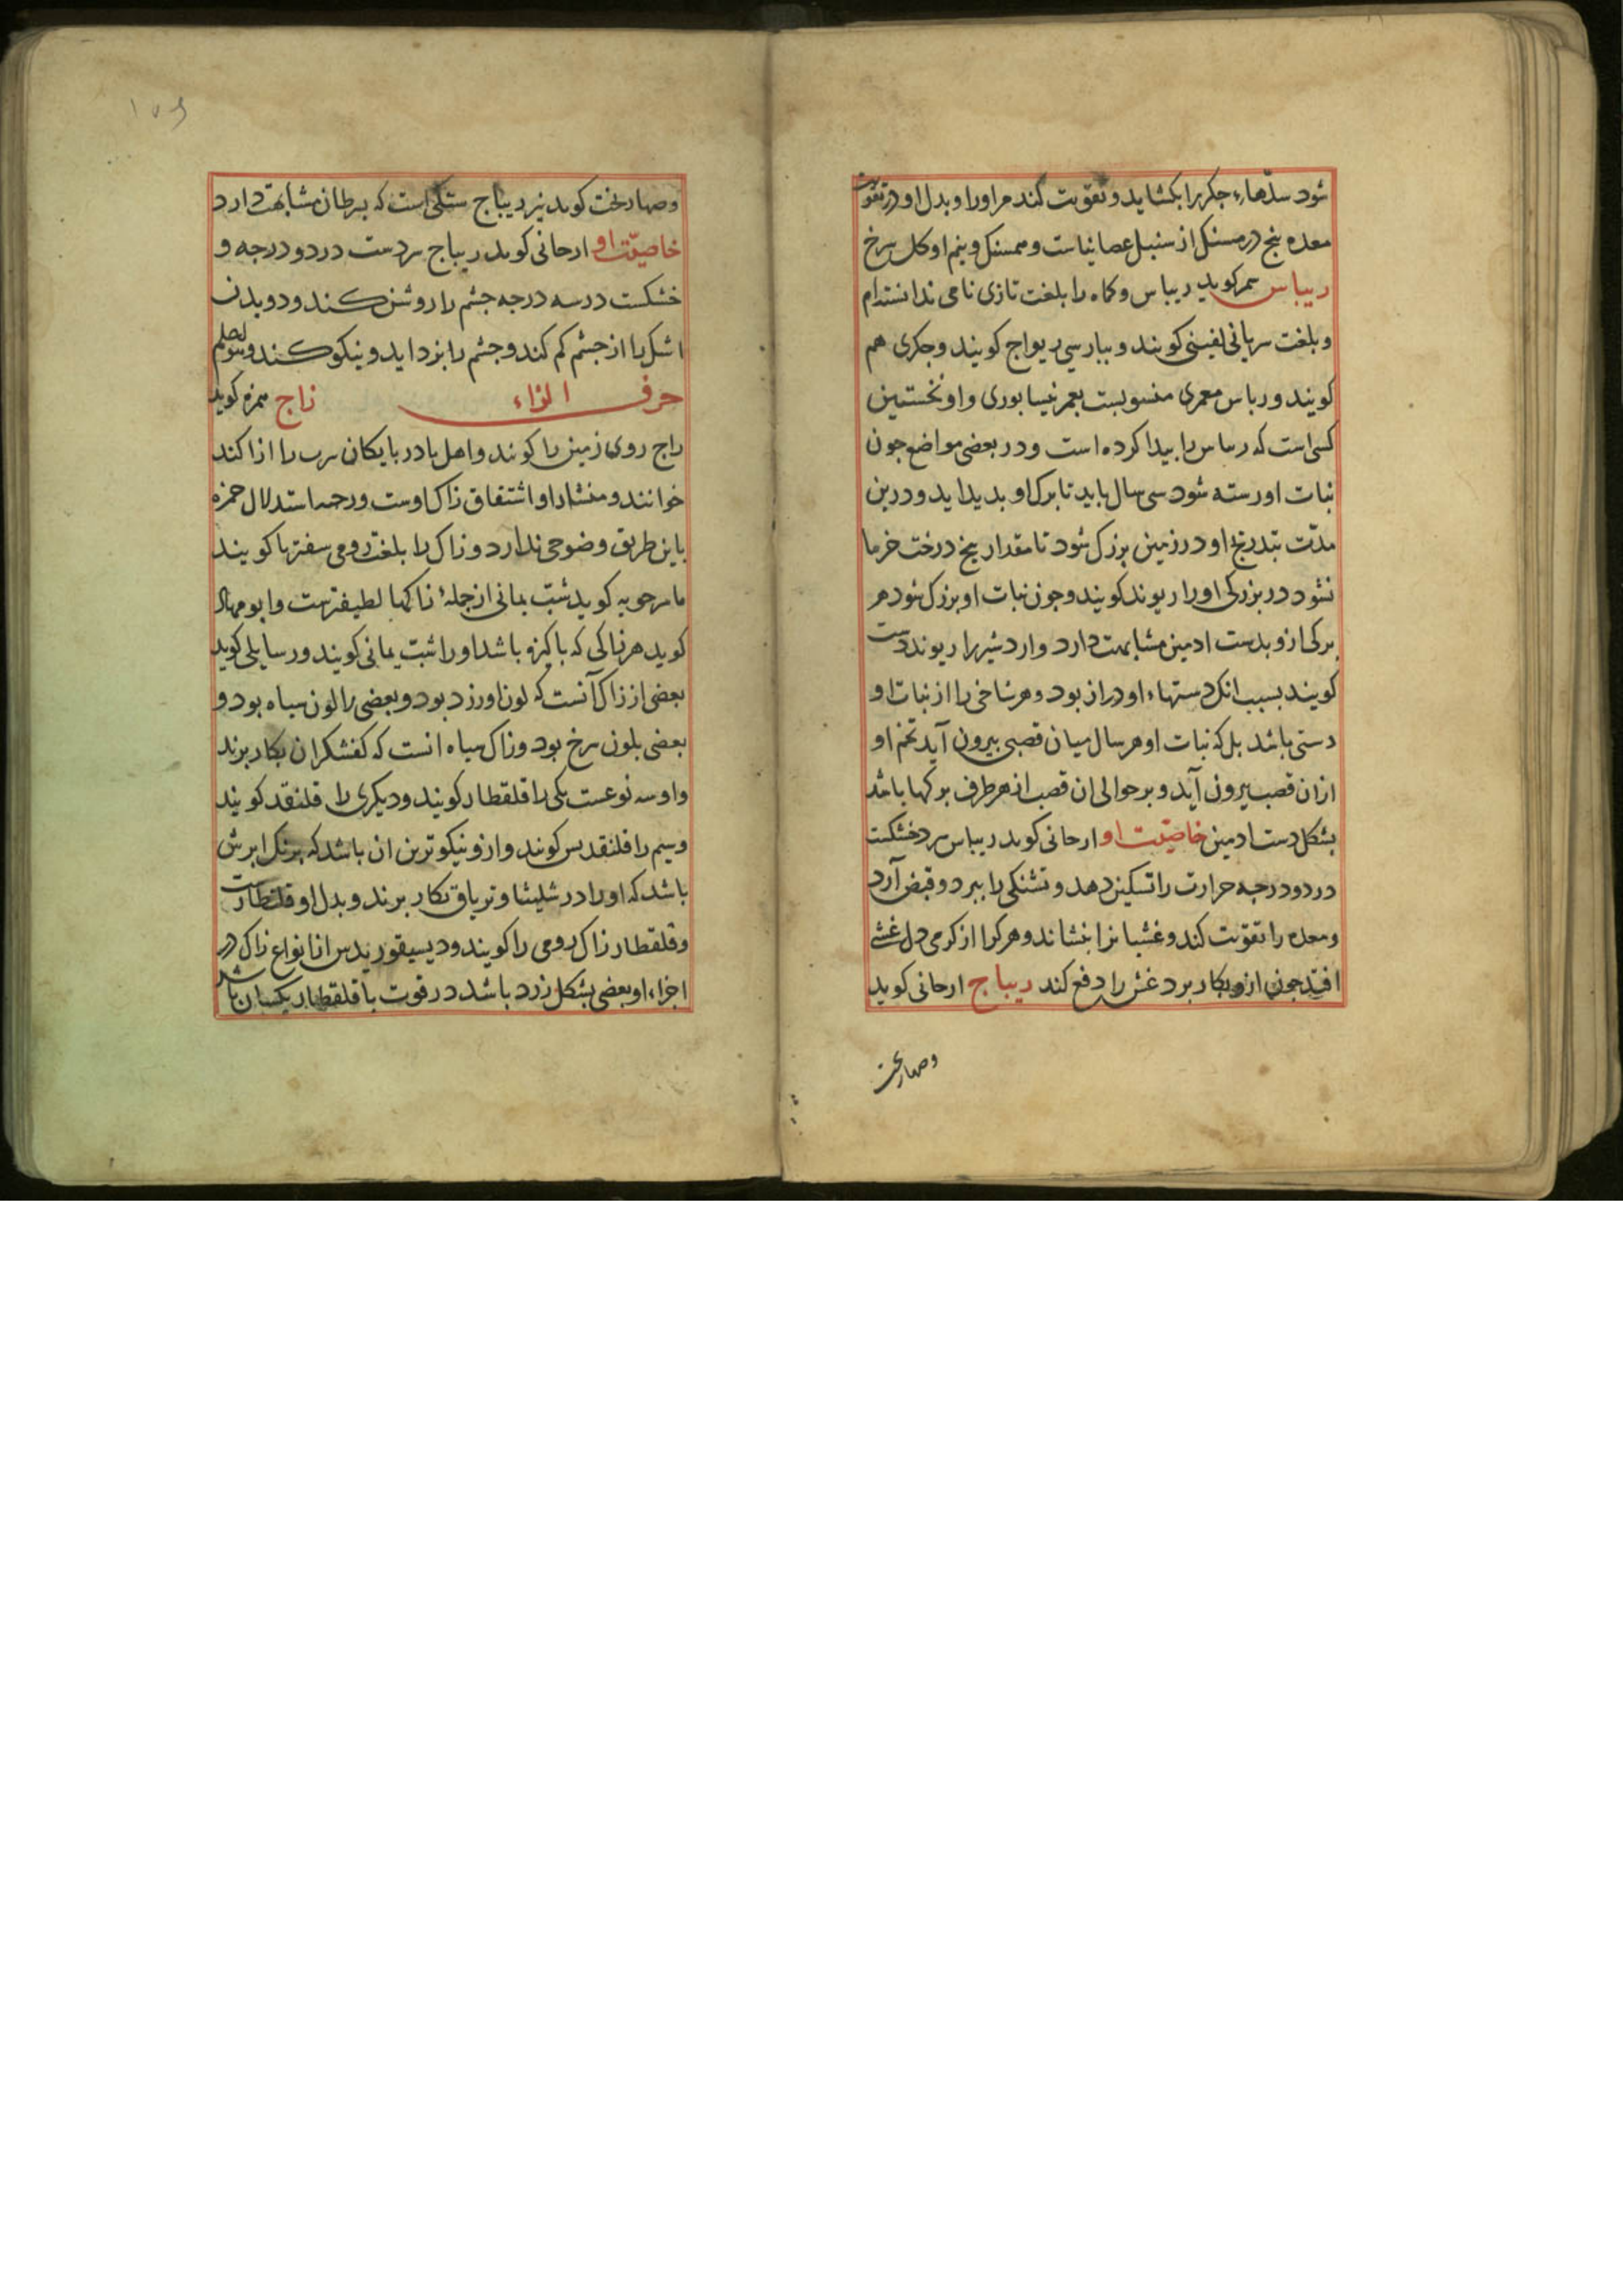 شود سدّهاء جکر را بکشاید و تقویت کند مر او را و بدل او در تقویت
معده پنج درمسنک از سنبل عصانیاست و همسنک و نیم او کل سرخ
ریباس کوید ریباس و کماه را بلغت تازی نامی ندانسته‌ام
و بلغت سریانی لفینی کویند و ببارسی ریواج کویند و جکری هم
کویند و رباس معمری منسوبست بعمر نیسابوری و او نخستین
کسی است که رساس را بیدا کرده است و در بعضی مواضع جون
نبات او رسته شود سی سال باید تا برک او بدید اید و درین
مدّت بتدریج او در زمین بزرک شود تا مقدار بیخ درخت خرما
نشود در بزرکی او را ریوند کویند و جون نبات او بزرک شود هر
برکی ازو بدست ادمین مشابهت دارد و اردشیر را ریوند دست
کویند بسبب انک دستهاء او دراز بود و هر شاخی را از نبات او
دستی باشد بل که نبات او هر سال میان قصبی بیرون آید تخم او
ازان قصب بیرون آید و بر حوالی ان قصب از هر طرف برکها باشد
بشکل دست ادمین خاصیّت او ارحانی کوید ریباس سرد خشکست
در دو درجه حرارت را تسکین دهد و تشنکی را ببرد و قبض آرد
و معده را تقویت کند و غشیانرا بنشاند و هر کرا از کرمی دل غشی
افتد جون ازو بکار برد غش را دفع کند ریباج ارحانی کوید
وصهاربخت
وصهاربخت کوید نیز ریباج سنکی است که بسرطان مشابهت دارد
خاصیّت او ارحانی کوید ریباج سردست در دو درجه و
خشکست در سه درجه جشم را روشن کند و دویدن
اشک را از جشم کم کند و جشم را بزداید و نیکو کند والله اعلم
حرف الزاء زاج حمزه کوید
راج روی زمین را کویند و اهل بادربایکان سرب را ازاکند
خوانند و منشاد او اشتقاق زاک اوست ورحه استدلال حمزه
باین طریق وضوحی ندارد و زاک را بلغت رومی سفترها کویند
ماسرجویه کوید شبّ یمانی از جملهٔ زاکها لطیفترست و ابو مهاد
کوید هر زاکی که باکیزه باشد او را شبّ یمانی کویند و رسایلی کوید
بعضی از زاک آنست که لون او زرد بود و بعضی را لون سیاه بود و
بعضی بلون سرخ بود و زاک سیاه انست که کفشکران بکار برند
و او سه نوعست یکی را قلقطار کویند و دیکری را قلنقد کویند
و سیم را قلنقدیس کویند و ازو نیکوترین ان باشد که برنک ابرش
باشد که او را در شلیثا و تریاق بکار برند و بدل او قلقطارست
و قلقطار زاک رومی را کویند و دیسیقوریدس از انواع زاک در
اجزاء او بعضی بشکل زرد باشد در قوت با قلقطار یکسان باشد